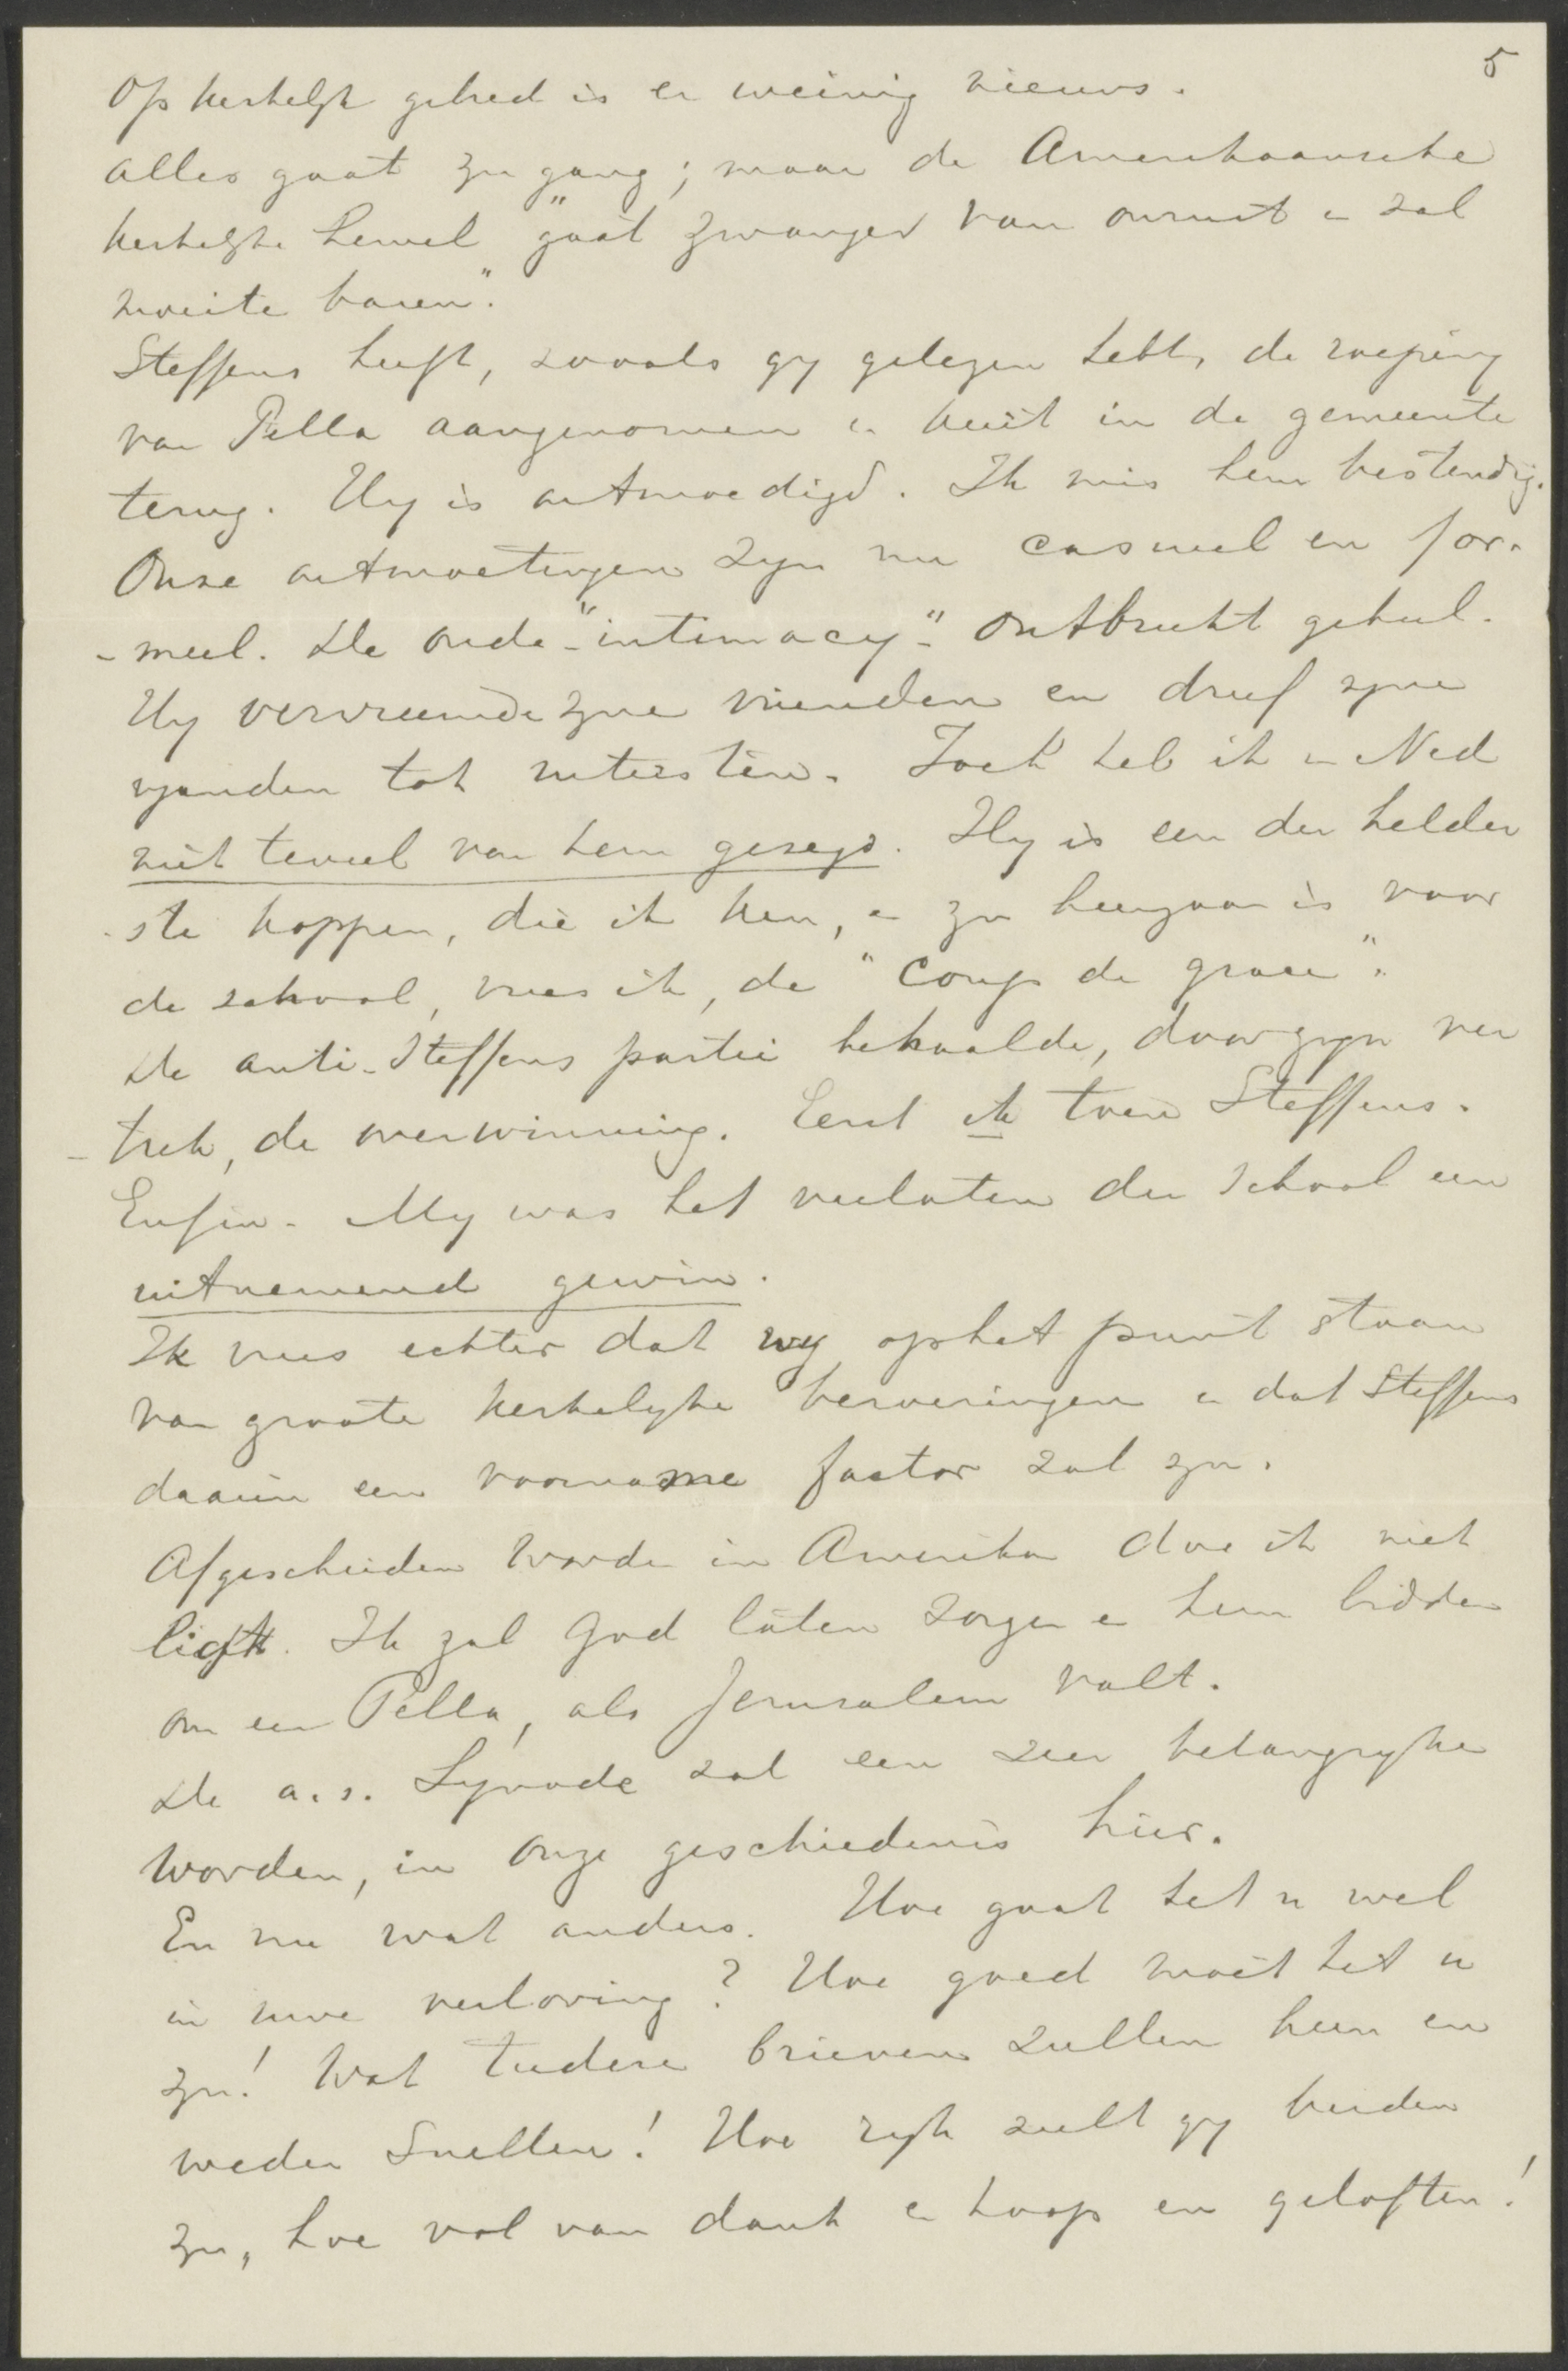 5
Op kerkelyk gebied is er weinig nieuws.
Alles gaat zyn gang; maar de Amerikaansche
kerkelyke hemel "gaat zwanger van onrust en zal
moeite baren".
Steffens heeft, zooals gy gelezen hebt, de roeping
van Pella aangenomen en keert in de gemeente
terug. Hy is ontmoedigd. Ik mis hem bestendig.
Onze ontmoetingen zyn nu casueel en for-
-meel. De oude "intimacy" ontbreekt geheel.
Hy vervreemde zyne vrienden en dreef zyne
vyanden tot uitersten. Toch heb ik in Ned
niet teveel van hem gezegd. Hy is een der helder
-ste koppen, die ik ken, en zyn heengaan is voor
de school, vrees ik, de "coup de grace".
De anti-Steffens partei behaalde, door zyn ver
-trek, de overwinning. Eerst ik toen Steffens.
Enfin. My was het verlaten der school een
uitnemend gewin.
Ik vrees echter dat wy op het punt staan
van groote kerkelyke beroeringen en dat Steffens
daarin een voorname factor zal zyn.
Afgescheiden worden in Amerika doe ik niet
licht. Ik zal God laten zorgen en hem bidden
om een Pella, als Jerusalem valt.
De a.s. Synode zal een zeer belangryke
worden, in onze geschiedenis hier.
En nu wat anders. Hoe gaat het u wel
in uwe verloving? Hoe goed moet het u
zyn! Wat teedere brieven zullen heen en
weder snellen! Hoe ryk zult gy beiden
zyn, hoe vol van dank en hoop en geloften!